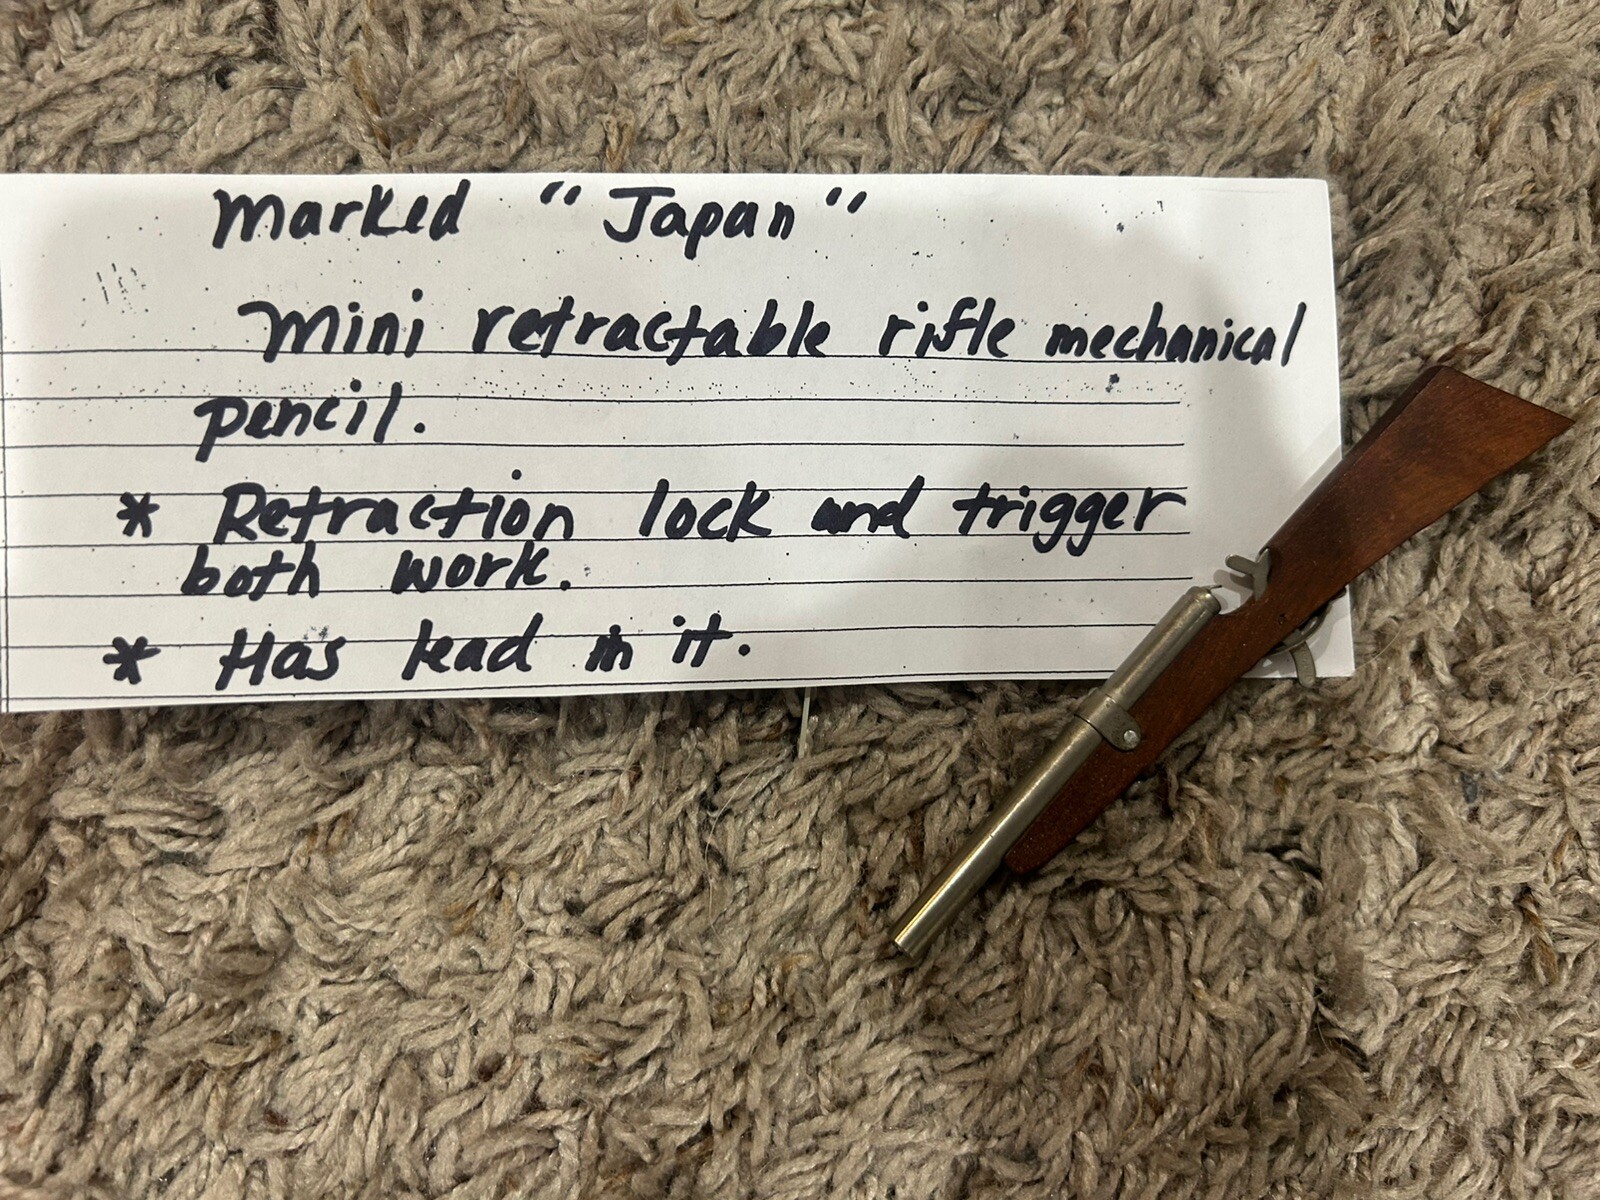 Marked "Japan"
Mini retractable rifle mechanical
pencil.
* Retraction lock and trigger
both work.
* Has lead in it.